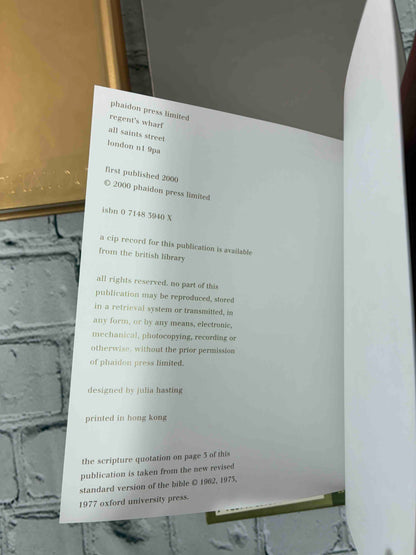 phaidon press limited
regent's wharf
all saints street
london n1 9pa
first published 2000
© 2000 phaidon press limited
isbn 0 7148 3940 X
a cip record for this publication is available
from the british library
all rights reserved. no part of this
publication may be reproduced, stored
in a retrieval system or transmitted, in
any form, or by any means, electronic,
mechanical, photocopying, recording or
otherwise, without the prior permission
of phaidon press limited.
designed by julia hasting
printed in hong kong
the scripture quotation on page 3 of this
publication is taken from the new revised
standard version of the bible © 1962, 1973,
1977 oxford university press.